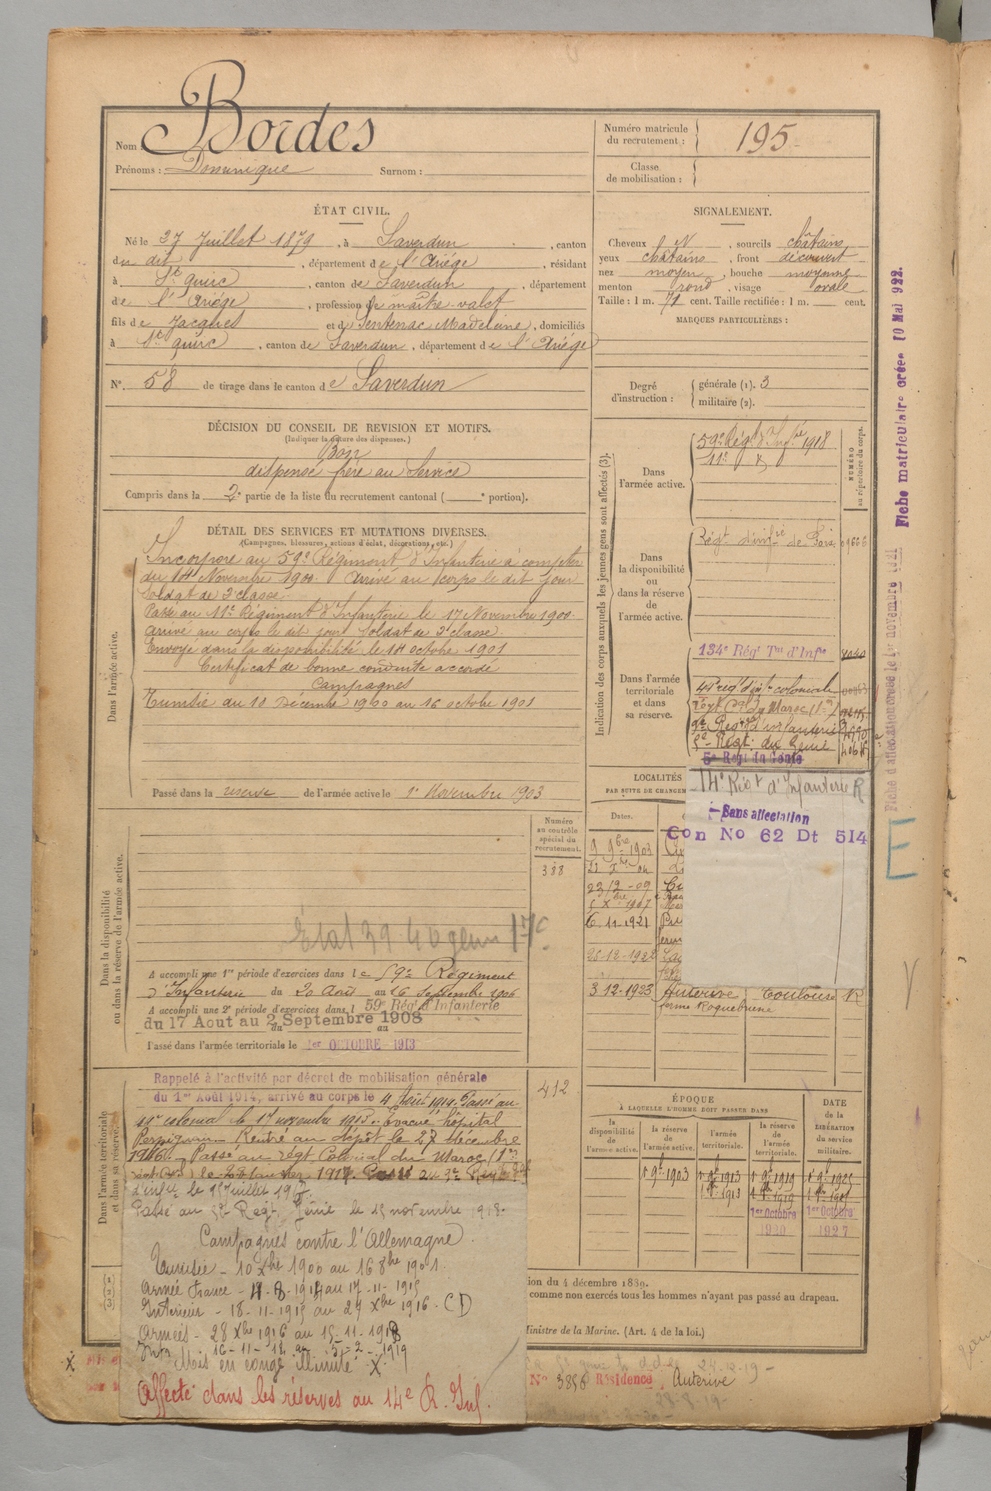 Nom : Bordes
Prénoms : Dominique Surnom :
Numéro matricule du recrutement : 195
Classe de mobilisation :
ÉTAT CIVIL.
Né le 27 Juillet 1879, à Saverdun, canton
du dit, département de l'Ariège, résidant
à St Quirc, canton de Saverdun, département
de l'Ariège, profession de maître-valet
fils de Jacques et de Sentenac Madeleine, domiciliés
à St Quirc, canton de Saverdun, département de l'Ariège
N° 58 de tirage dans le canton de Saverdun
SIGNALEMENT.
Cheveux N, sourcils châtains
yeux châtains, front découvert
nez moyen, bouche moyenne
menton rond, visage ovale
Taille : 1 m. 71 cent. Taille rectifiée : 1 m. cent.
MARQUES PARTICULIÈRES :
Degré d'instruction : générale (1). 3
militaire (2).
DÉCISION DU CONSEIL DE REVISION ET MOTIFS.
(Indiquer la nature des dispenses.)
Bon
dispensé frère au Service
Compris dans la 2e partie de la liste du recrutement cantonal ( e portion).
DÉTAIL DES SERVICES ET MUTATIONS DIVERSES.
(Campagnes, blessures, actions d'éclat, décorations, etc.)
Dans l'armée active.
Incorporé au 59e Régiment d'Infanterie à compter
du Novembre 1900. Arrivé au corps le dit jour
Soldat de 2e classe.
Passé au 11e Régiment d'Infanterie le 17 Novembre 1900.
Arrivé au corps le dit jour Soldat de 2e classe.
Envoyé dans la disponibilité le 18 octobre 1901
Certificat de bonne conduite accordé
Campagnes
Tunisie du 10 Décembre 1900 au 16 octobre 1901
Passé dans la réserve de l'armée active le 1er Novembre 1903
Indication des corps auxquels les jeunes gens sont affectés (3).
NUMÉRO au répertoire du corps.
Dans l'armée active.
59e Régt d'Infie 1918
11e
Dans la disponibilité ou dans la réserve de l'armée active.
Régt d'infie de Foix
Dans l'armée territoriale et dans sa réserve.
134e Régt Tal d'Infie
44e régt d'infie coloniale
Régt Cal du Maroc
Régt d'infanterie
5e Régt du Génie
5e Régt du Génie
14e Régt d'Infanterie R
Sans affectation
Con No 62 Dt 514
LOCALITÉS
Dates.
9 9bre 1903
22-12-09
6 11-1921
25-12-1922
3 12-1923 Auterive Toulouse R
ferme Roquebrune
Numéro au contrôle spécial du recrutement.
388
Dans la disponibilité ou dans la réserve de l'armée active.
A accompli une 1re période d'exercices dans le 59e Régiment
d'Infanterie du 20 Août au 16 Septembre 1906
A accompli une 2e période d'exercices dans l 59e Régt d'Infanterie
du 17 Aout au 2 Septembre 1908
Passé dans l'armée territoriale le 1er OCTOBRE 1913
412
Dans l'armée territoriale et dans sa réserve.
Rappelé à l'activité par décret de mobilisation générale
du 1er Août 1914, arrivé au corps le 4 Août 1914. Passé au
colonial le 17 novembre 1915. Evacué hôpital
Perpignan Rentré au dépôt le 27 décembre
1916. Passé au régt Colonial du Maroc
d'infie le 15 Juillet 1917.
Passé au 5e Régt Génie le 15 novembre 1918.
Campagnes contre l'Allemagne.
Tunisie - 10 Xbre 1900 au 16 8bre 1901.
Armée France - 4-8-1914 au 17-11-1915
Intérieur - 18-11-1915 au 27 Xbre 1916. CD
Armées - 28 Xbre 1916 au 15-11-1918
Int. 16-11-18 au 5-2-1919
Mis en congé illimité X
Affecté dans les réserves au 14e R. Inf.
ÉPOQUE
À LAQUELLE L'HOMME DOIT PASSER DANS
la disponibilité de l'armée active.
la réserve de l'armée active.
l'armée territoriale.
la réserve de l'armée territoriale.
DATE de la LIBÉRATION du service militaire.
1er 9bre 1903 1er 9bre 1913 1er 9bre 1919 1er 9bre 1925
1er Octobre 1920
1er Octobre 1927
ion du 4 décembre 1889.
comme non exercés tous les hommes n'ayant pas passé au drapeau.
Ministre de la Marine. (Art. 4 de la loi.)
24-12-19
N° 3856 Résidence Auterive
28-8-19
Fiche matriculaire créée 10 Mai 922.
Fiche d'affectation créée le 1er novembre 1921
E